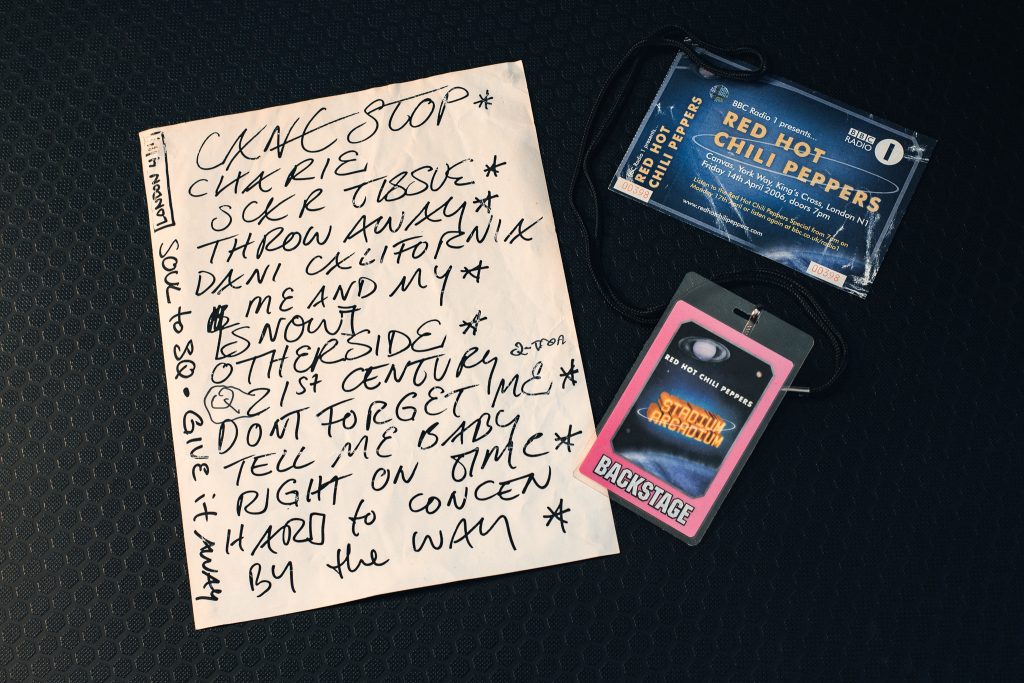 CANT STOP *
CHARIE
SCKR TISSUE *
THROW AWAY *
DANI CALIFORNIA
ME AND MY *
[SNOW]
OTHERSIDE *
21ST CENTURY
DONT FORGET ME *
TELL ME BABY
RIGHT ON TIME *
HARD to CONCEN
BY the WAY *
LONDON
SOUL to SQ - GIVE it AWAY
BBC Radio 1 presents...
RED HOT
CHILI PEPPERS
00398
BBC Radio 1 presents...
RED HOT
CHILI PEPPERS
BBC
RADIO 1
Canvas, York Way, King's Cross, London N1
Friday 14th April 2006, doors 7pm
Listen to The Red Hot Chili Peppers Special from 7pm on
Monday 17th April or listen again at bbc.co.uk/radio1
www.redhotchilipeppers.com
00398
RED HOT CHILI PEPPERS
STADIUM
ARCADIUM
BACKSTAGE